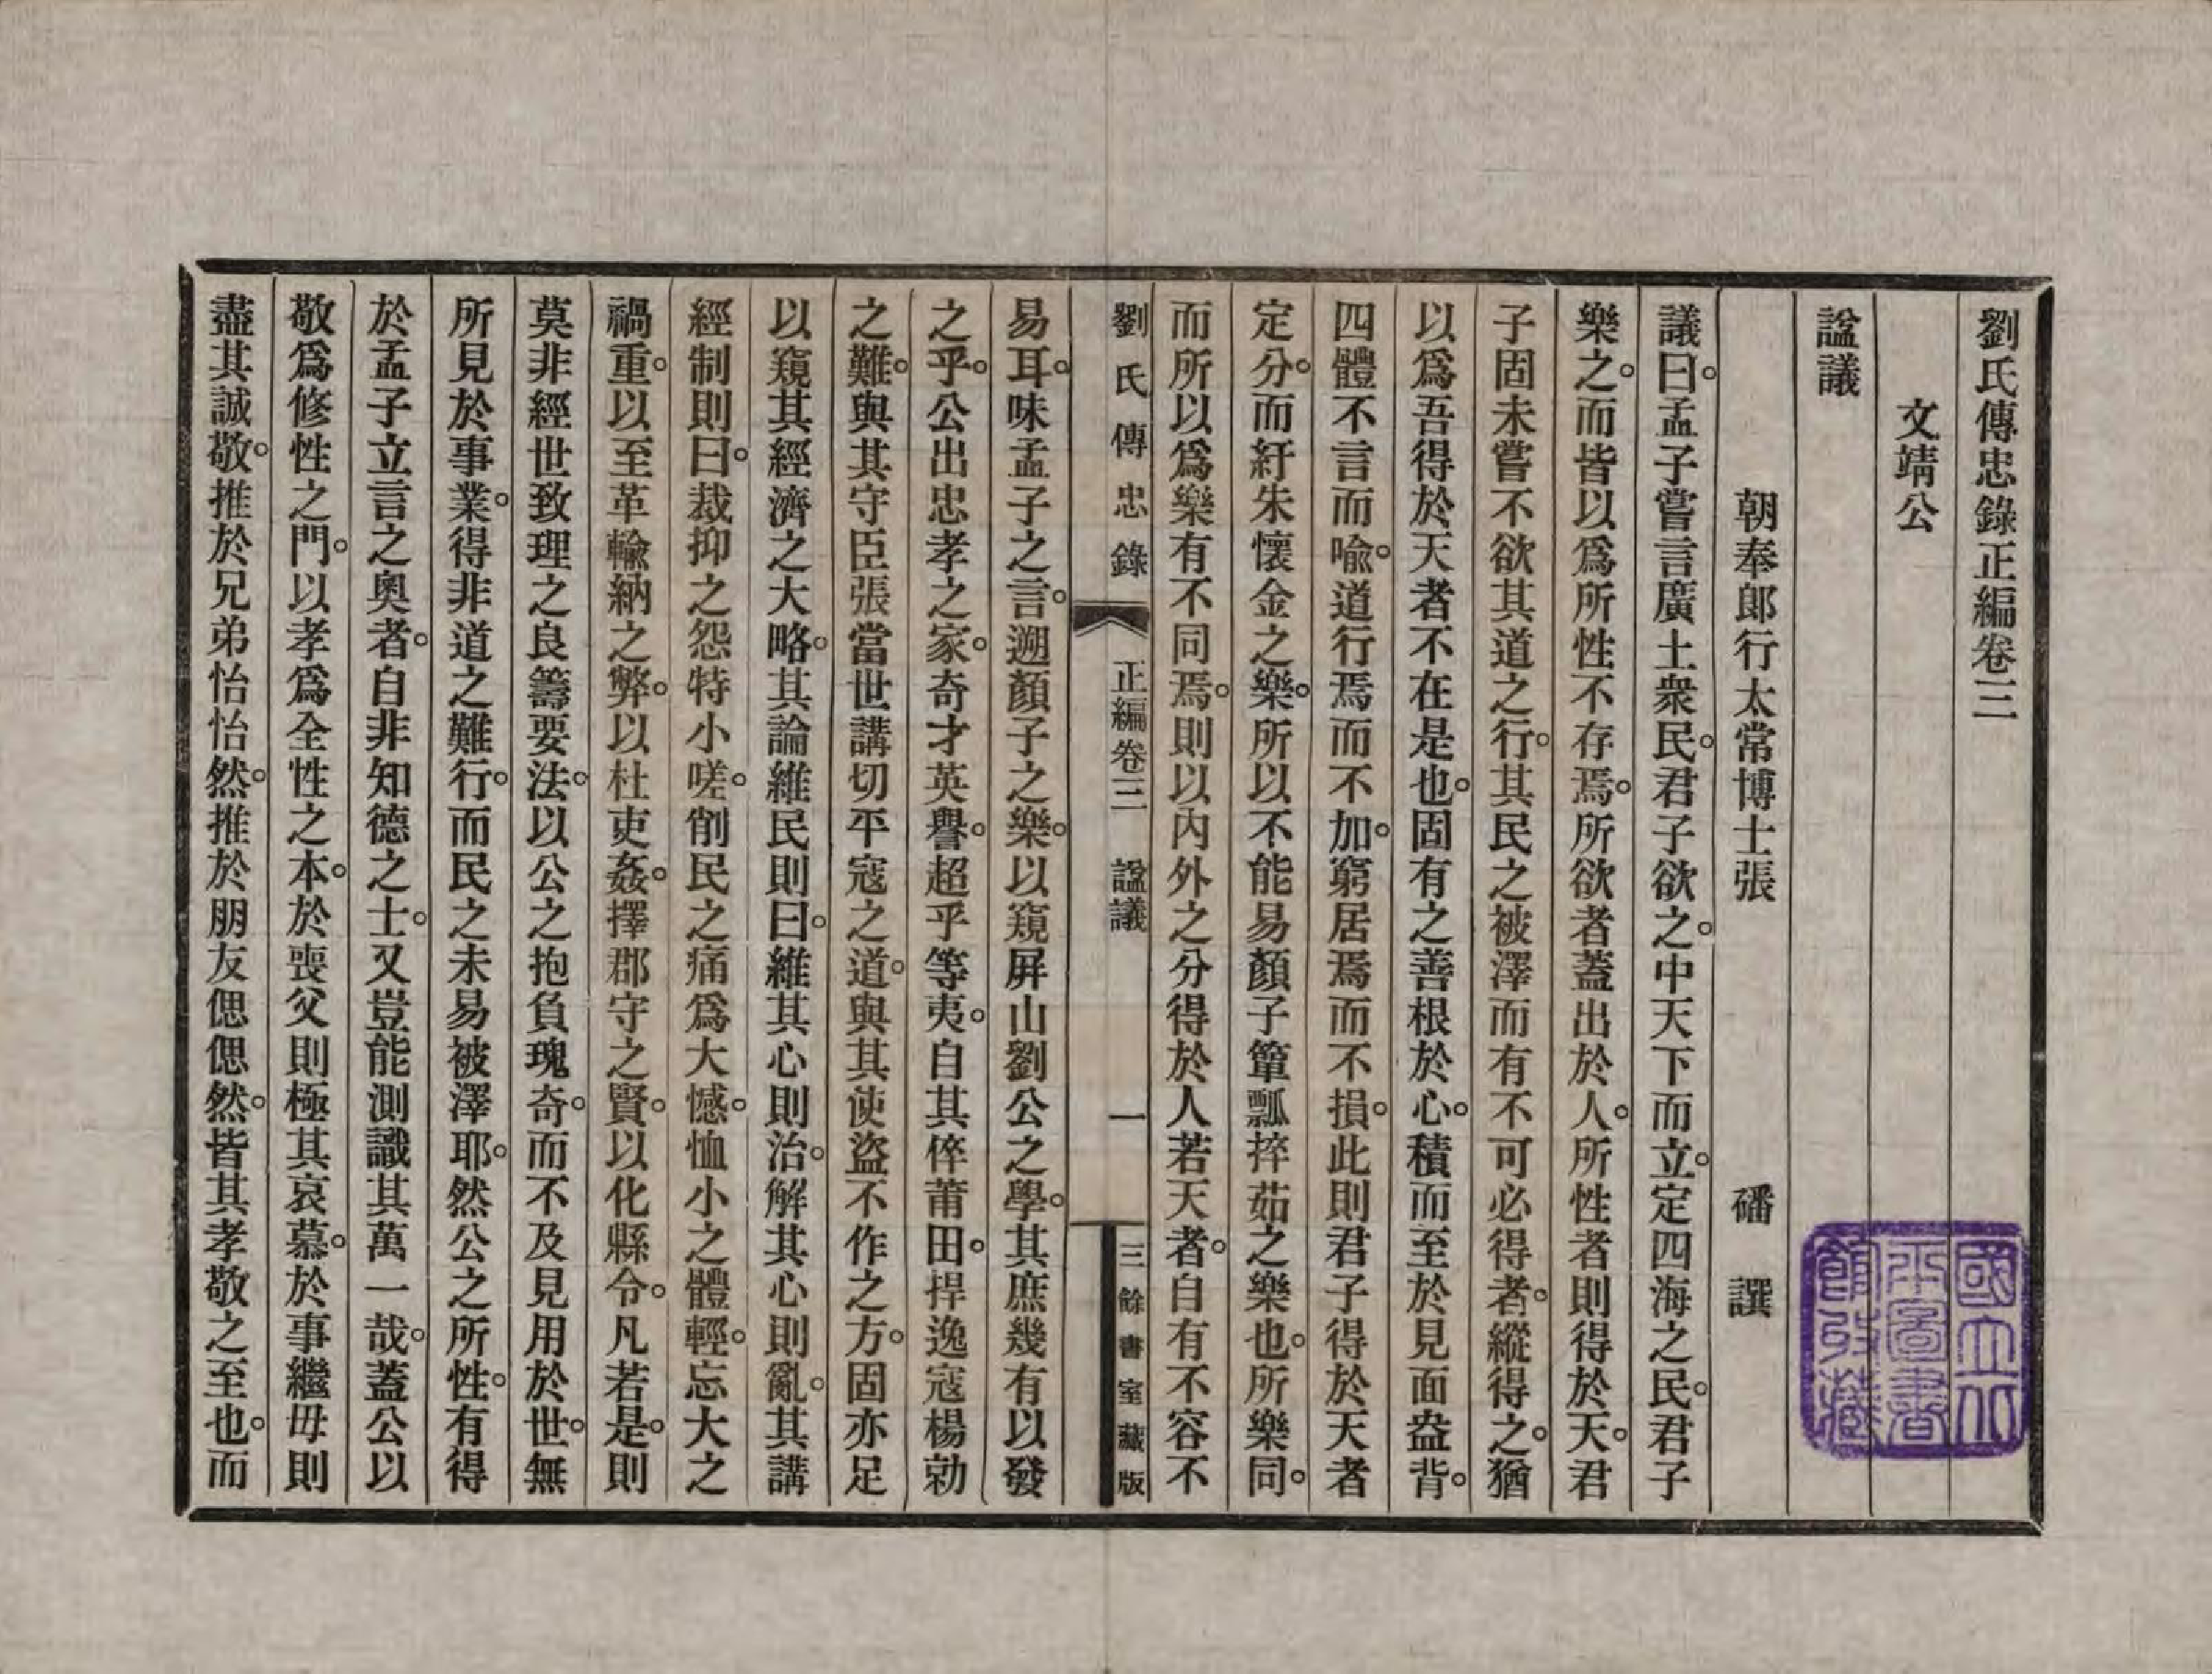 劉氏傳忠錄正編卷三
文靖公
諡議
朝奉郎行太常博士張　磻　譔
議曰。孟子嘗言廣土衆民。君子欲之。中天下而立。定四海之民。君子
樂之。而皆以爲所性不存焉。所欲者蓋出於人。所性者則得於天。君
子固未嘗不欲其道之行。其民之被澤而有不可必得者。縱得之。猶
以爲吾得於天者不在是也。固有之善根於心。積而至於見面盎背。
四體不言而喻。道行焉而不加。窮居焉而不損。此則君子得於天者
定分。而紆朱懷金之樂。所以不能易顏子簞瓢捽茹之樂也。所樂同。
而所以爲樂有不同焉。則以內外之分得於人若天者。自有不容不
劉氏傳忠錄　正編卷三　諡議　一　三餘書室藏版
易耳。味孟子之言。遡顏子之樂。以窺屏山劉公之學。其庶幾有以發
之乎。公出忠孝之家。奇才英譽。超乎等夷。自其倅莆田。捍逸寇楊勍
之難。與其守臣張當世講切平寇之道。與其使盜不作之方。固亦足
以窺其經濟之大略。其論維民則曰。維其心則治。解其心則亂。其講
經制則曰。裁抑之怨特小嗟。削民之痛爲大憾。恤小之體輕。忘大之
禍重。以至革輸納之弊。以杜吏姦。擇郡守之賢。以化縣令。凡若是。則
莫非經世致理之良籌要法。以公之抱負瑰奇。而不及見用於世。無
所見於事業。得非道之難行。而民之未易被澤耶。然公之所性。有得
於孟子立言之奧者。自非知德之士。又豈能測識其萬一哉。蓋公以
敬爲修性之門。以孝爲全性之本。於喪父則極其哀慕。於事繼母則
盡其誠敬。推於兄弟怡怡然。推於朋友偲偲然。皆其孝敬之至也。而
國立北
平圖書
館收藏